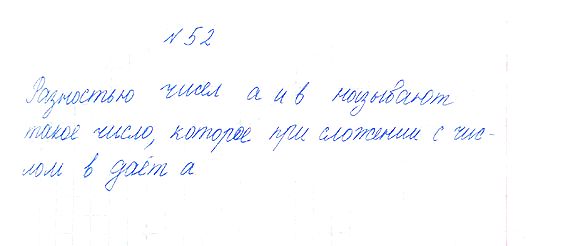 № 52
Разностью чисел а и в называют
такое число, которое при сложении с чис-
лом в даёт а